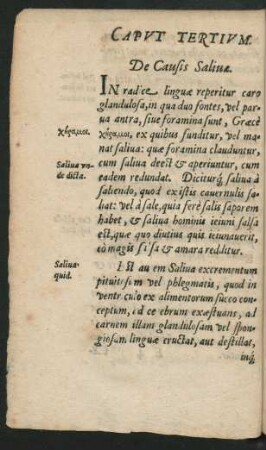 CAPVT TERTIVM.
De Causis Saliuæ.
IN radice linguæ reperitur caro
glandulosa, in qua duo fontes, vel par
ua antra, siue foramina sunt, Græcè
χήραμοι.
χήραμοι, ex quibus funditur, vel ma
nat saliua: quæ foramina clauduntur,
Saliua vn-
de dicta.
cum saliua deest & aperiuntur, cum
eadem redundat. Diciturq́ saliua à
saliendo, quod ex istis cauernulis sa
liat: vel à sale, quia ferè salis saporem
habet, & saliua hominis ieiuni salsa
est, quæ quo diutius quis ieiunauerit,
eò magis salsa & amara redditur.
Saliua
quid.
Est autem Saliua excrementum
pituitosum vel phlegmatis, quod in
ventriculo ex alimentorum succo con
ceptum, ad cerebrum exæstuans, ad
carnem illam glandulosam vel spon
giosam linguæ eructat, aut destillat,
inq́;